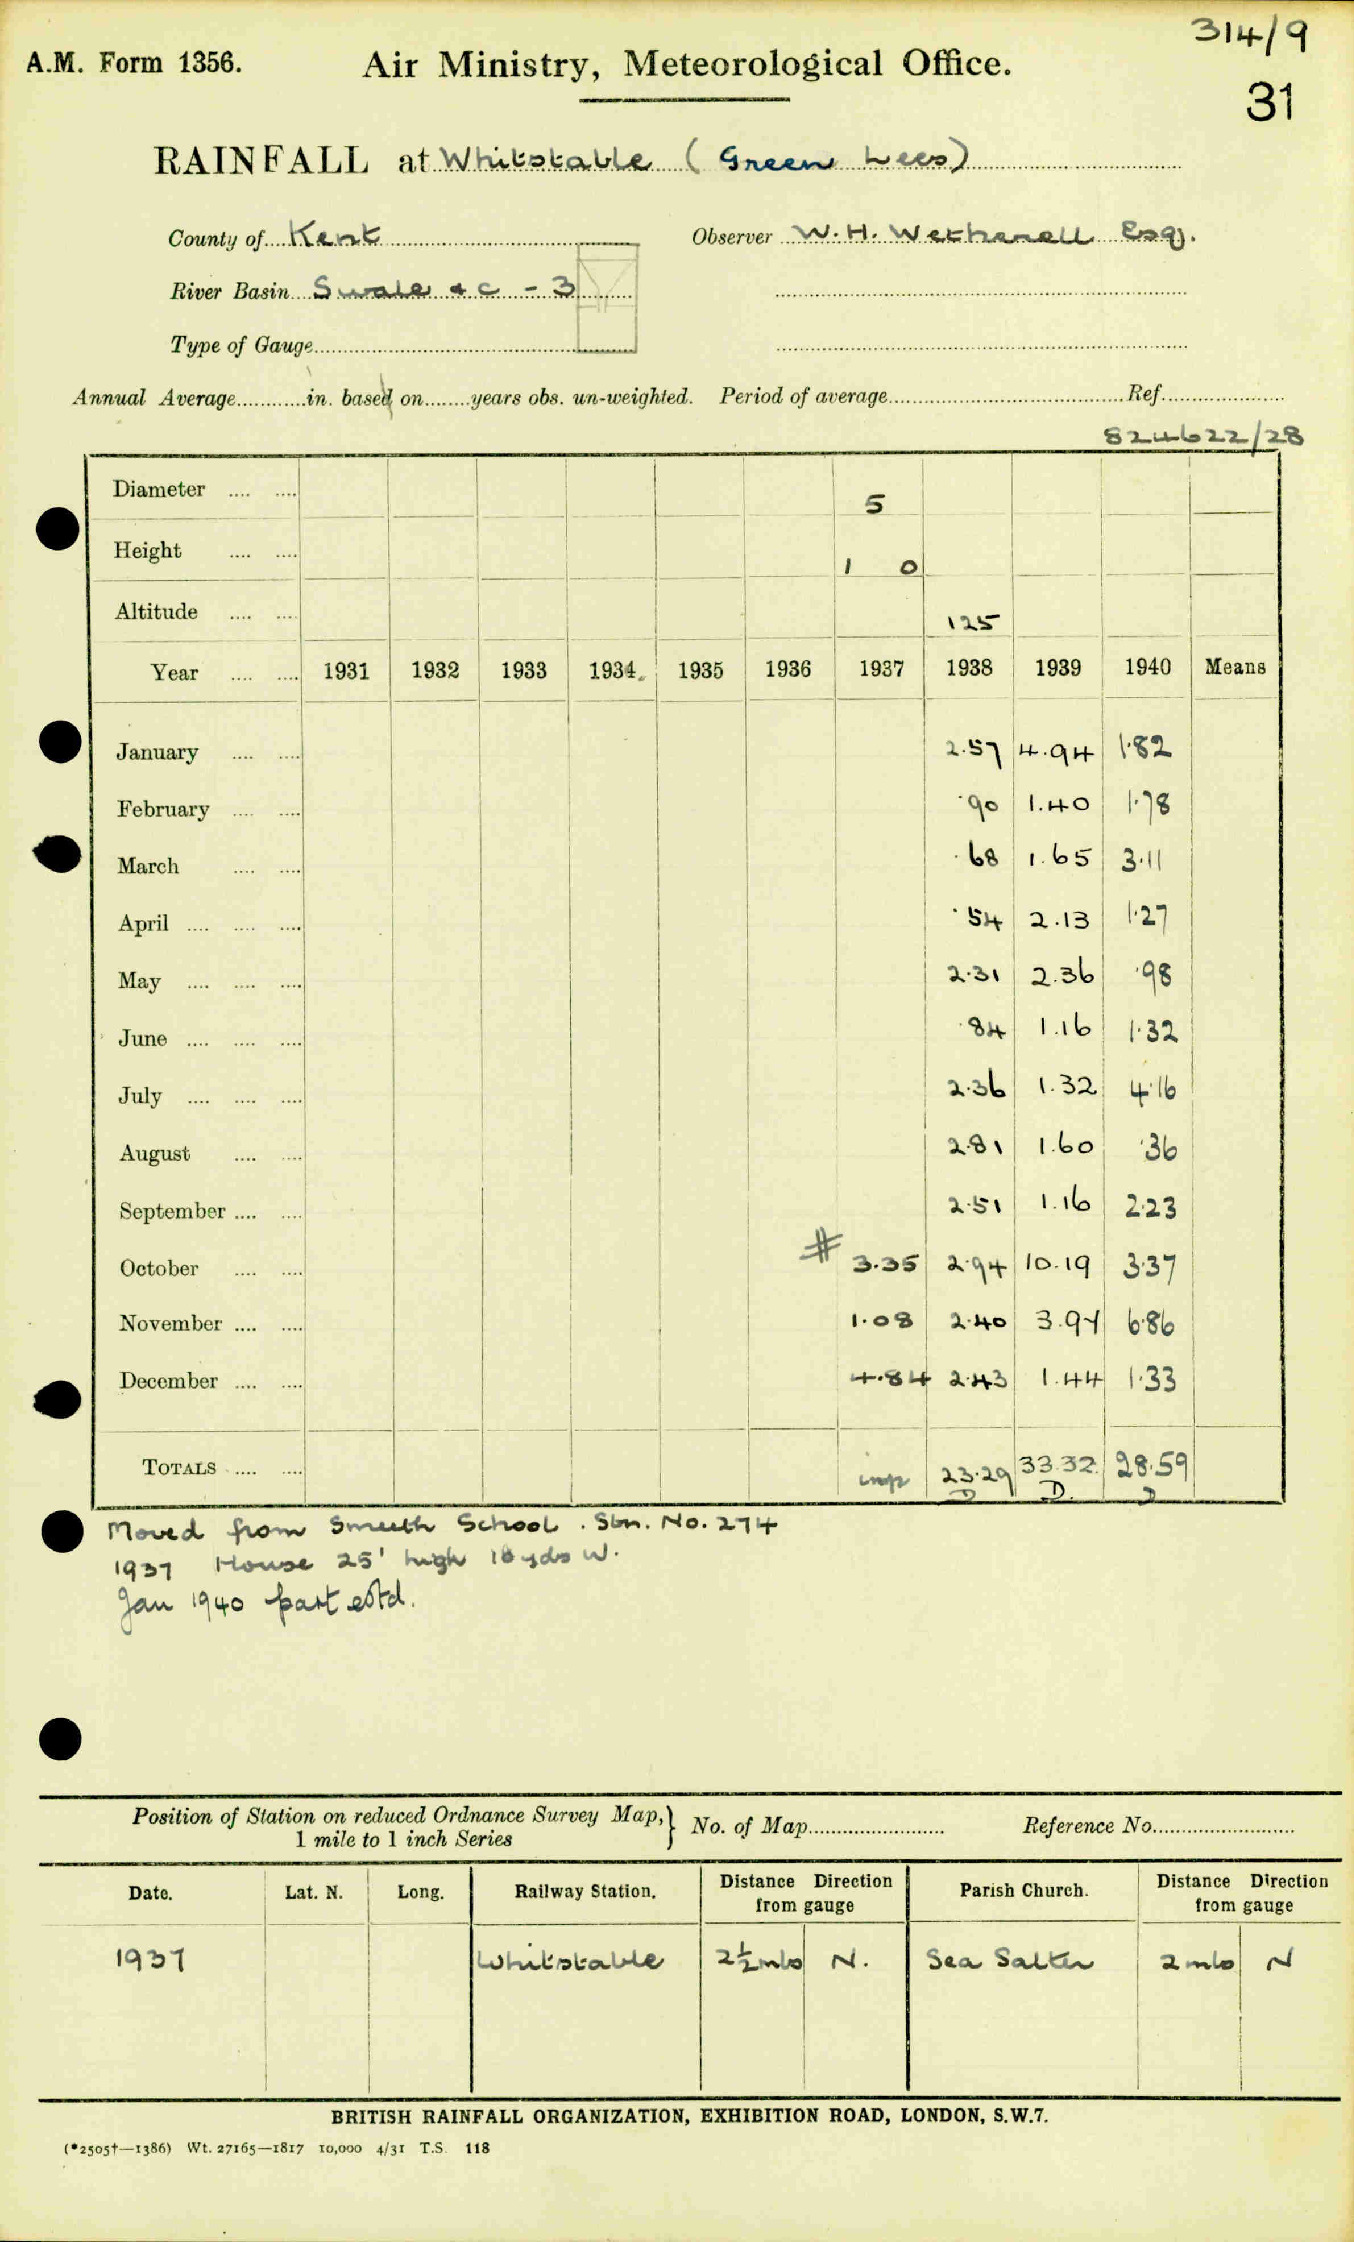 314/9
A.M. Form 1356. Air Ministry, Meteorological Office.
31
RAINFALL at Whitstable (Green Lees)
County of Kent Observer W. H. Wetherell Esq.
River Basin Swale &c - 3
Type of Gauge
Annual Average in. based on years obs. un-weighted. Period of average Ref.
824622/28
Diameter 5
Height 1 0
Altitude 125
Year 1931 1932 1933 1934 1935 1936 1937 1938 1939 1940 Means
January 2.57 4.94 1.82
February .90 1.40 1.78
March .68 1.65 3.11
April .54 2.13 1.27
May 2.31 2.36 .98
June .84 1.16 1.32
July 2.36 1.32 4.16
August 2.81 1.60 .36
September 2.51 1.16 2.23
October # 3.35 2.94 10.19 3.37
November 1.08 2.40 3.97 6.86
December 4.84 2.43 1.44 1.33
TOTALS inp 23.29 33.32 28.59
D D. D
Moved from Smeeth School. Stn. No. 274
1937 House 25' high 18 yds W.
Jan 1940 part estd.
Position of Station on reduced Ordnance Survey Map, } No. of Map Reference No.
1 mile to 1 inch Series
Date. Lat. N. Long. Railway Station. Distance Direction from gauge Parish Church. Distance Direction from gauge
1937 Whitstable 2½ mls N. Sea Salter 2 mls N
BRITISH RAINFALL ORGANIZATION, EXHIBITION ROAD, LONDON, S.W.7.
(*2505†—1386) Wt. 27165—1817 10,000 4/31 T.S. 118